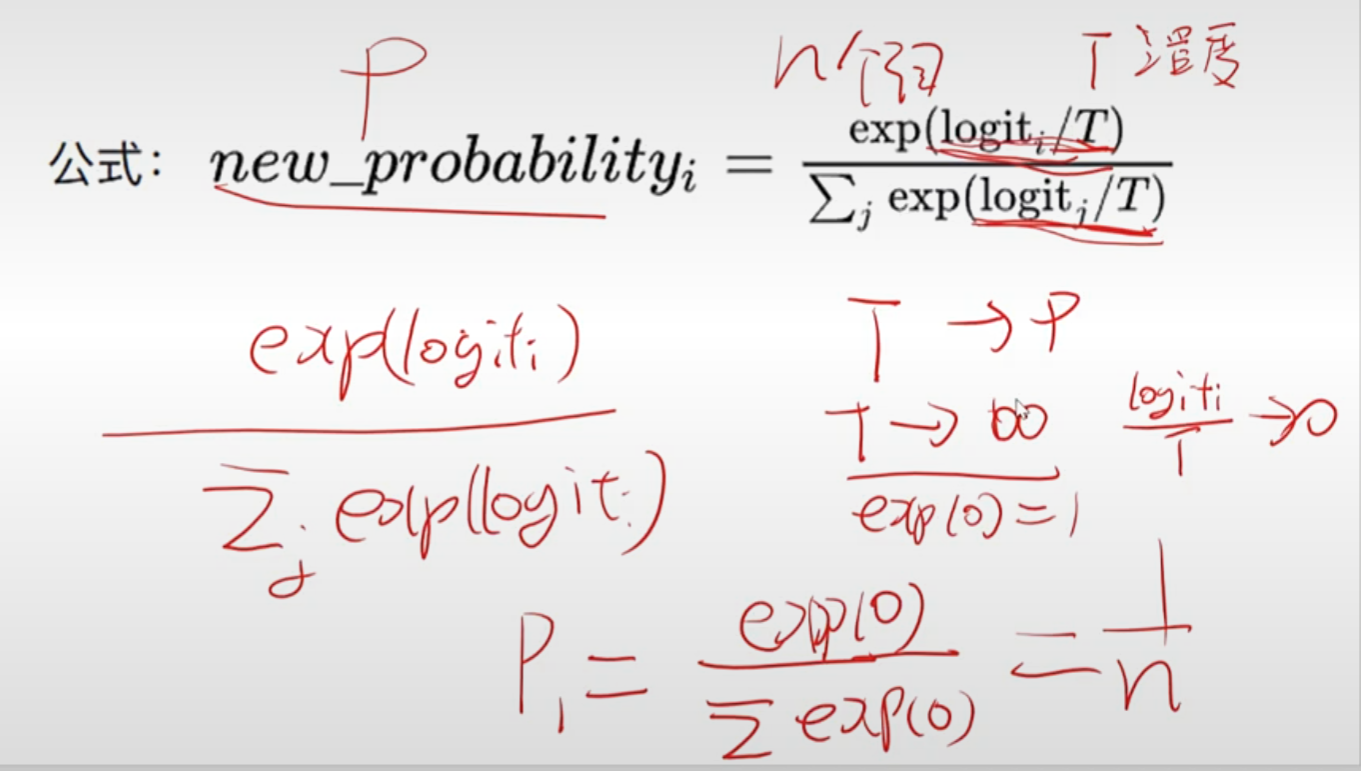 P n个词 T 温度
公式： new_probability_i = exp(logit_i/T) / ∑_j exp(logit_j/T)
exp(logit_i) / ∑_j exp(logit_i)
T → P
T → ∞ logit_i / T → 0
exp(0) = 1
P_i = exp(0) / ∑ exp(0) = 1 / n